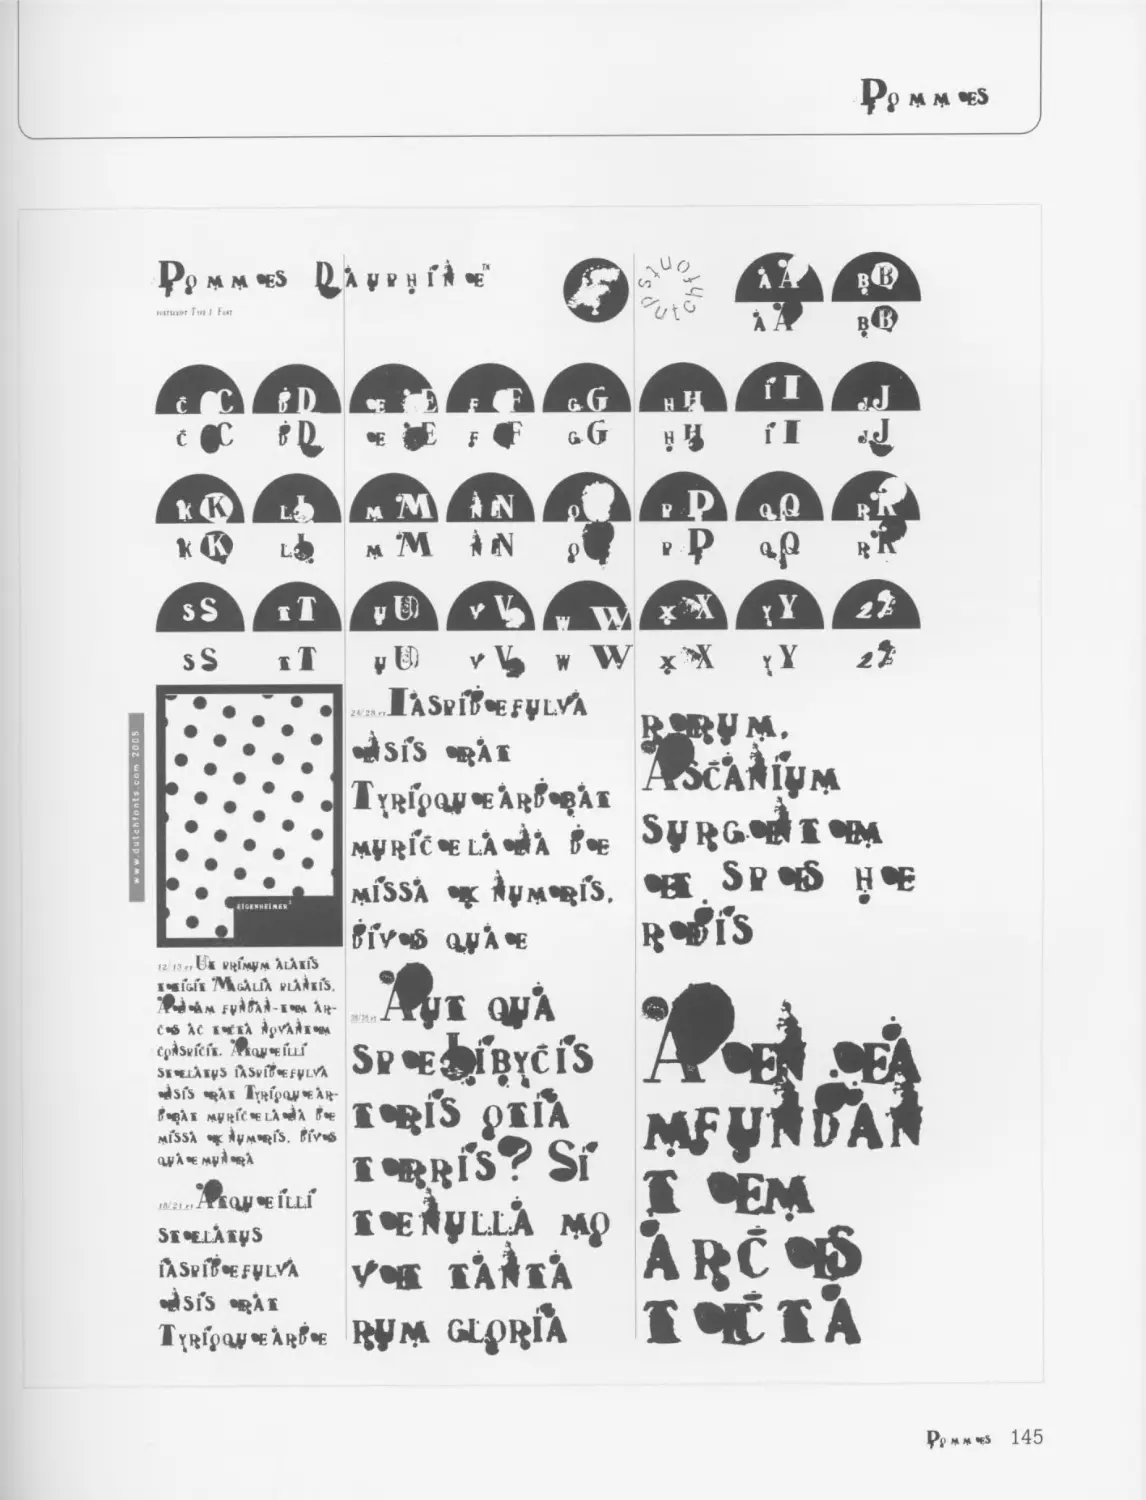 Pommes
Pommes Dauphine™
PostScript Type 1 Font
dutchfonts
A A B B
A A B B
C C D D E E F F G G H H I I J J
C C D D E E F F G G H H I I J J
K K L L M M N N O O P P Q Q R R
K K L L M M N N O O P P Q Q R R
S S T T U U V V W W X X Y Y Z Z
S S T T U U V V W W X X Y Y Z Z
www.dutchfonts.com 2005
EIGENHEIMER
12/13 pt Ut primum alatis
tetigit Magalia plantis.
Aenam fundan-tem ar-
ces ac tecta novantem
conspicit. Atque illi
stellatus iaspide fulva
ensis erat Tyrioque ar-
debat murice laena de
missa ex numeris. Dives
quae munera
18/21 pt Atque illi
stellatus
iaspide fulva
ensis erat
Tyrioque arde
24/28 pt Iaspide fulva
ensis erat
Tyrioque ardebat
murice laena de
missa ex numeris.
Dives quae
Aut qua
spe Libycis
teris otia
terris? Si
te nulla mo
vet tanta
rum gloria
rerum.
Ascanium
surgentem
et spes he
redis
Aen ea
mfundan
t em
arc es
t ecta
Pommes 145